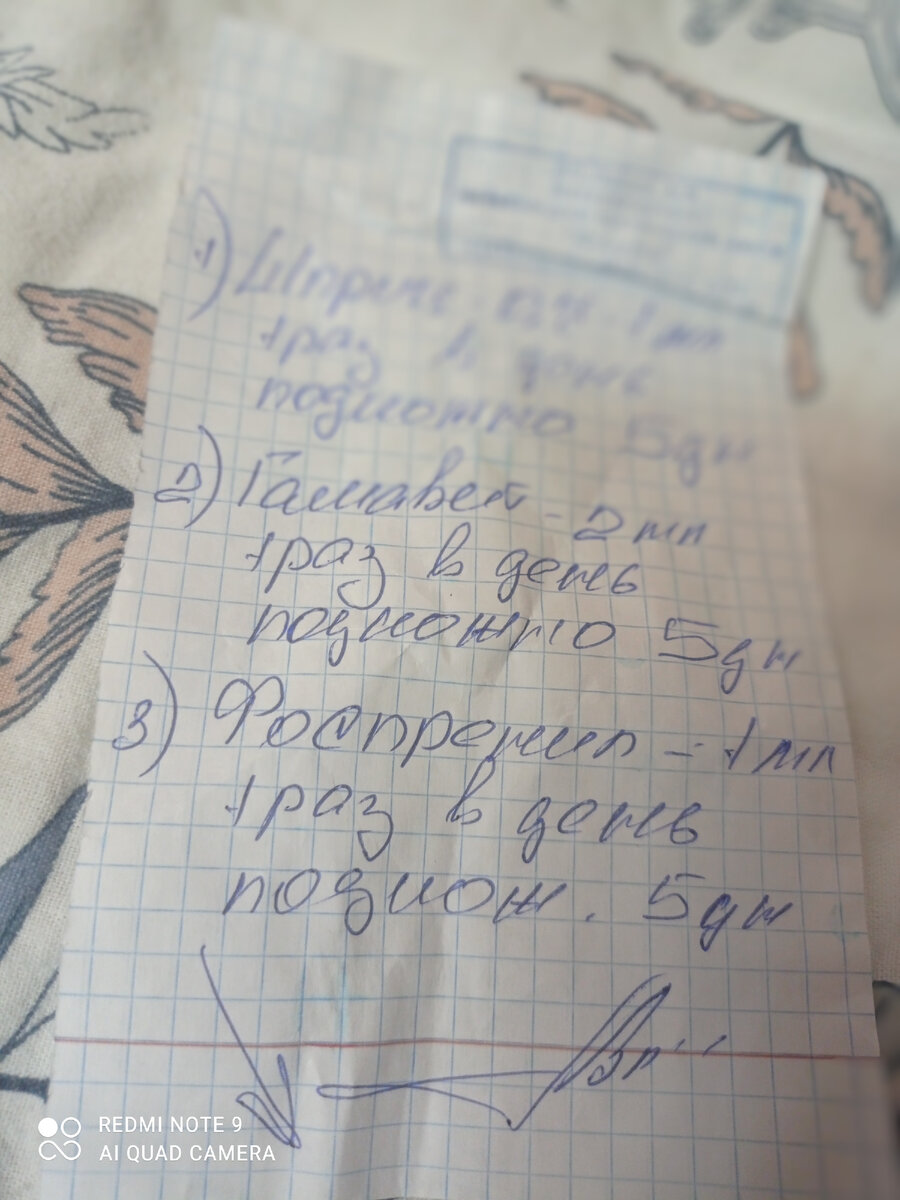 1) Шприц 1 мл
1 раз в день
подкожно 5 дн
2) Гамавет - 2 мл
1 раз в день
подкожно 5 дн
3) Фоспренил - 1 мл
1 раз в день
подкож. 5 дн
REDMI NOTE 9
AI QUAD CAMERA